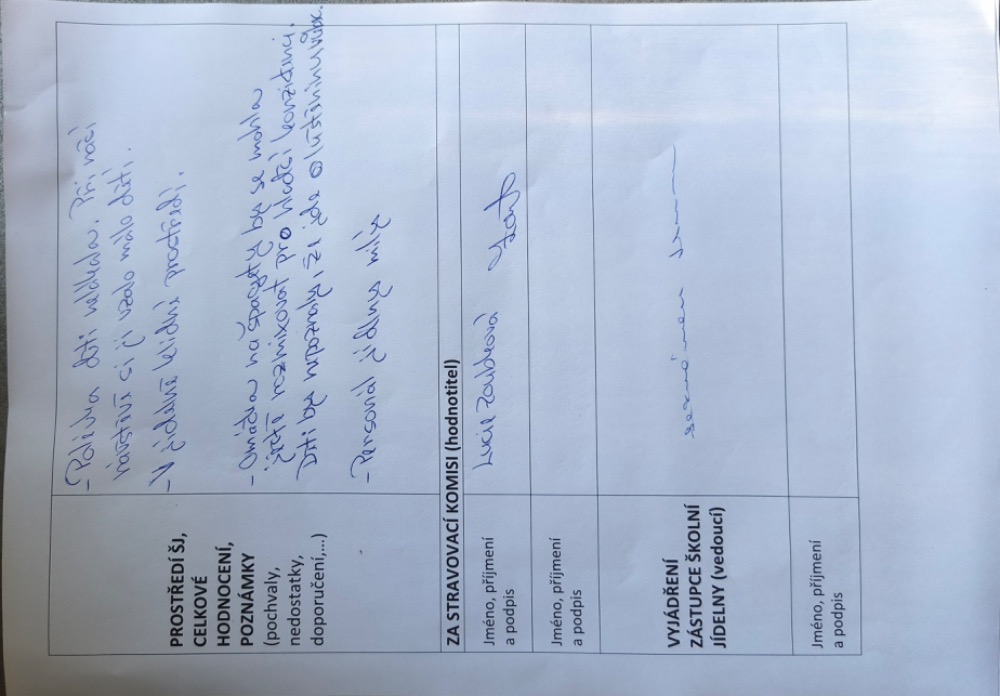 PROSTŘEDÍ ŠJ,
CELKOVÉ
HODNOCENÍ,
POZNÁMKY
(pochvaly,
nedostatky,
doporučení,...)
- Polévka dětí nelákala. Při mé
návštěvě si ji vzalo málo dětí.
- V jídelně klidné prostředí.
- Omáčka na špagety by se mohla
ještě rozmixovat pro hladčí konzistenci.
Děti by nepoznaly, že jde o luštěninu vůbec.
- Personál jídelny milý
ZA STRAVOVACÍ KOMISI (hodnotitel)
Jméno, příjmení
a podpis
Lucie
Jméno, příjmení
a podpis
VYJÁDŘENÍ
ZÁSTUPCE ŠKOLNÍ
JÍDELNY (vedoucí)
Jméno, příjmení
a podpis